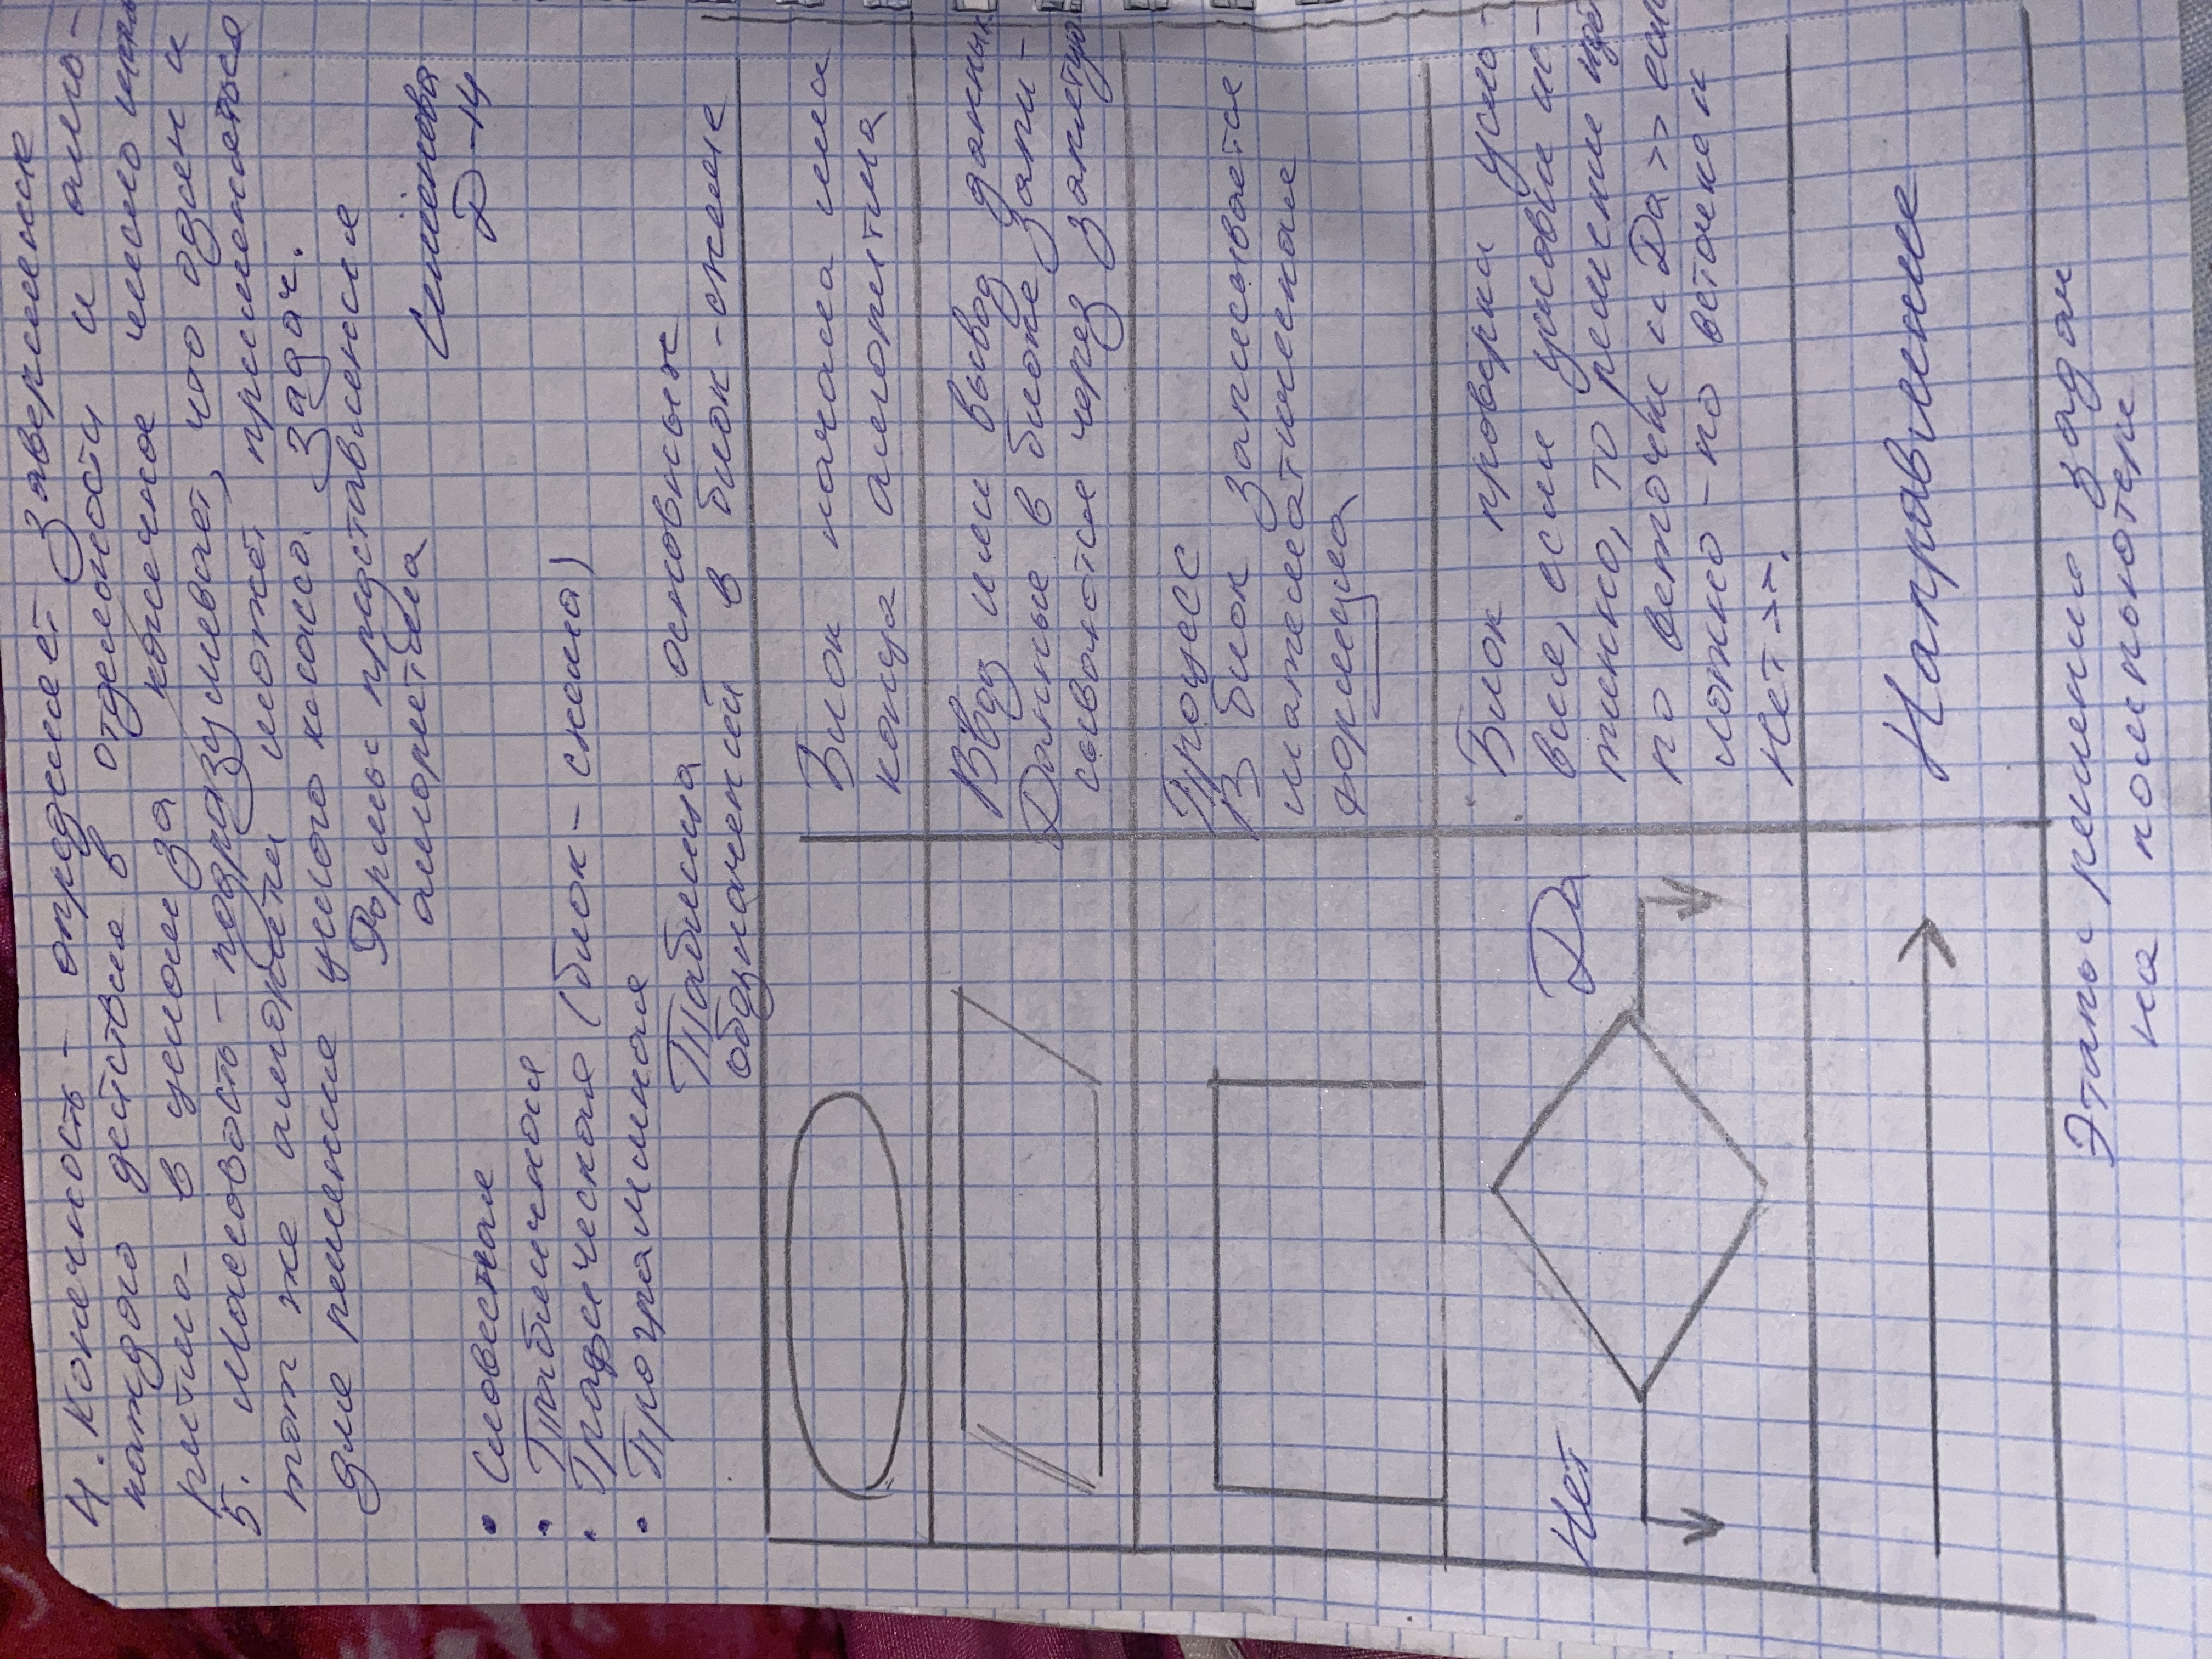 4. Конечность - определяет завершение
каждого действия в отдельности и алго-
ритма в целом за конечное число
5. Массовость - подразумевает, что один и
тот же алгоритм может применяться
для решения целого класса задач.
Формы представления
алгоритма
Семёнова
Д-14
• Словестная
• Табличная
• Графическая (блок-схема)
• Программная
Таблица основных
обозначений в блок-схеме
Блок начала или
конца алгоритма
Ввод или вывод данных
Данные в блоке запи-
сываются через запятую
Процесс
В блок записывается
математическая
формула
Нет
Да
Блок проверки усло-
вия, если условие ис-
тинно, то решение
по веточки «Да>> если
ложно - по веточке «
Нет>>.
Направление
Этапы решения задач
на компьютере